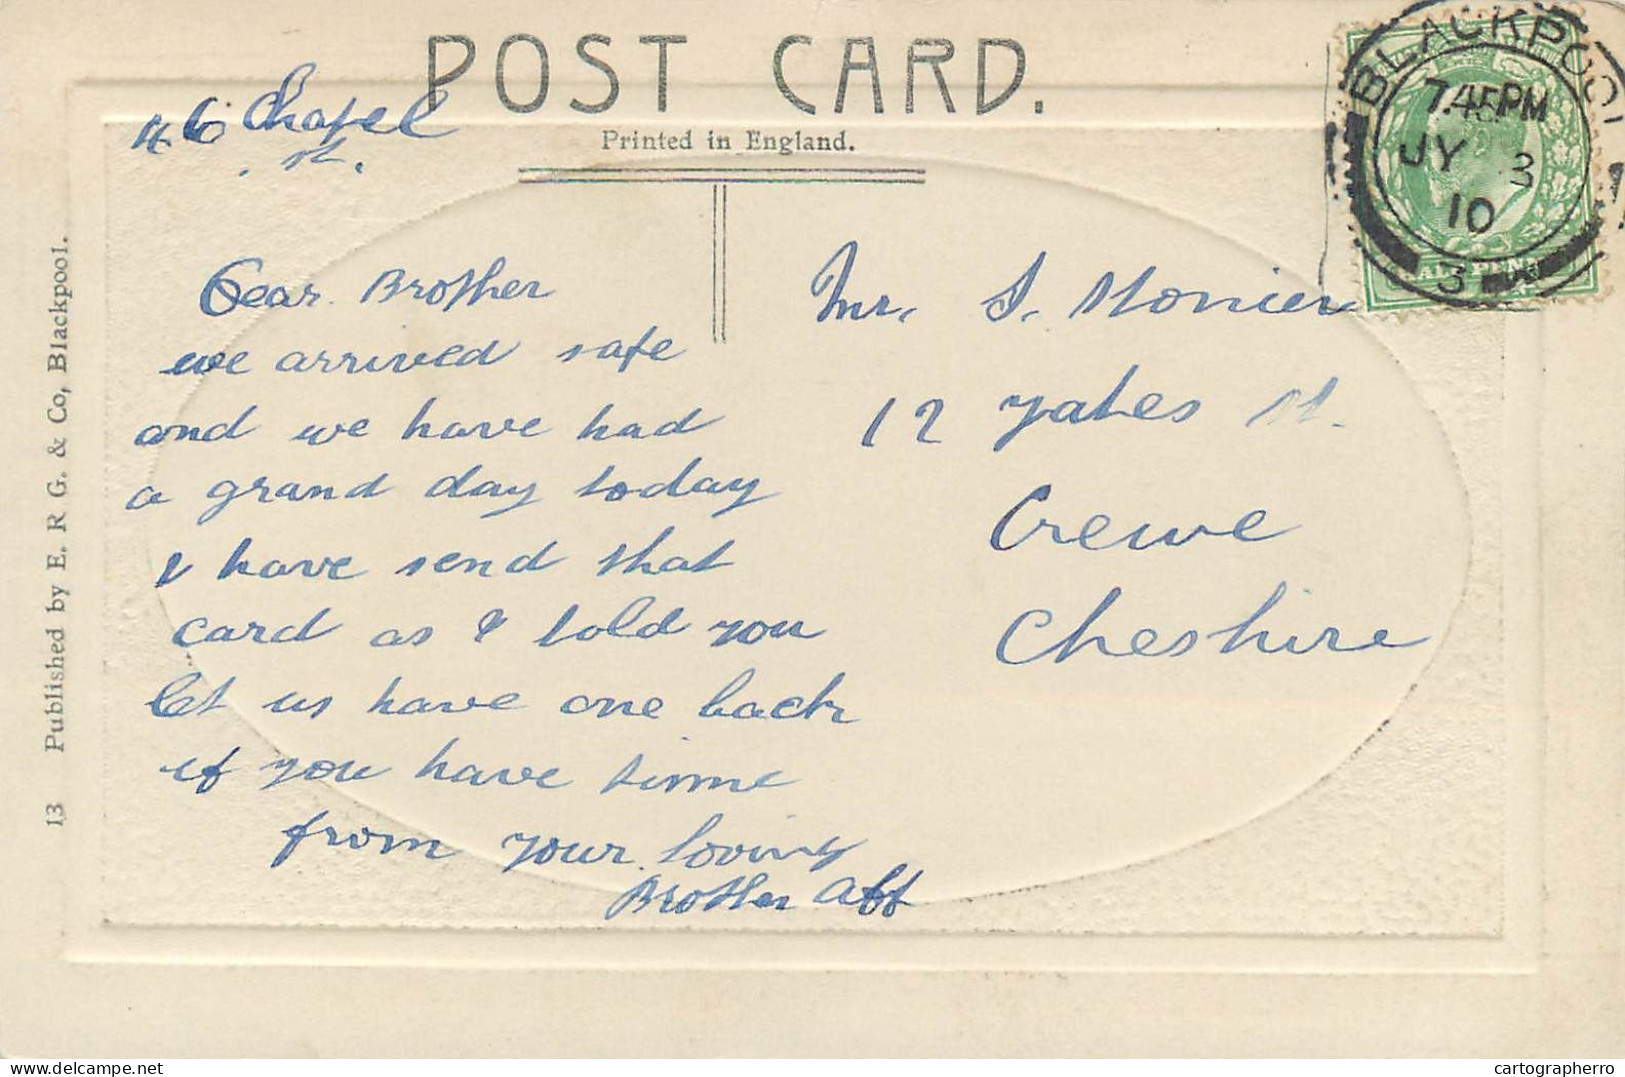 POST CARD.
Printed in England.
46 Chapel
st.
Dear Brother
we arrived safe
and we have had
a grand day today
I have send that
card as I told you
let us have one back
if you have time
from your loving
Brother Alf
Mr. S. Monier
12 Yates St.
Crewe
Cheshire
BLACKPOOL
7.45PM
JY 3
10
3
HALFPENNY
13 Published by E. R G. & Co, Blackpool.
delcampe.net
cartographerro